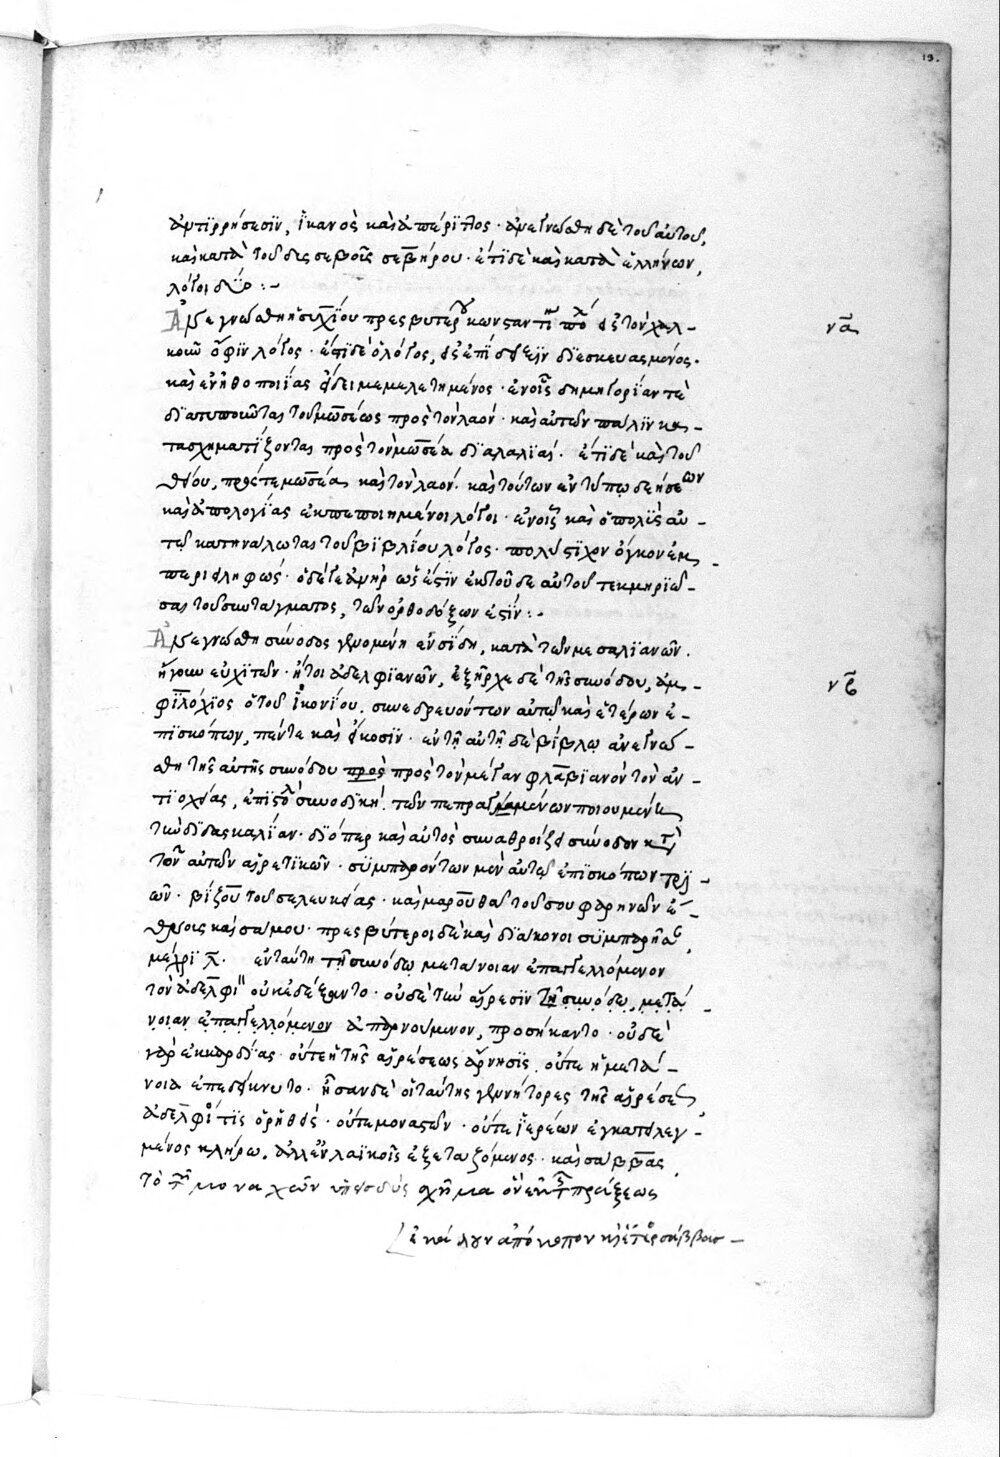 19.
ἀντιρρήσεσϊν, ἱκανὸς καὶ ἀπέρϊττος· ἀνεγνώσθη δὲ τοῦ αὐτοῦ,
καὶ κατὰ τοῦ δυσσεβοῦς σεβήρου· ἔτϊ δὲ καὶ κατὰ ἑλλήνων,
λόγοι δύο :-
Ἀνεγνώσθη ἡσυχίου πρεσβυτέρου κωνσταντϊ εἰς τὸν χαλ-
κοῦν ὄφϊν λόγος· ἔστϊ δὲ ὁ λόγος, εἰς ἐπίδειξϊν δϊεσκευασμένος·
καὶ ἐν ἠθοποιΐας εἴδει μεμελετημένος· ἐν οἷς δημηγορίαν τὲ
δϊατυποῦντας τοῦ μωσέως πρὸς τὸν λαόν· καὶ αὐτῶν πάλϊν κα-
τασχηματίζοντας πρὸς τὸν μωσέα δϊαλαλϊάς· ἔτϊ δὲ καὶ τοῦ
θείου, πρός τε μωσέα καὶ τὸν λαόν· καὶ τούτων ἐν τύπῳ δεήσεων
καὶ ἀπολογίας ἐκπεποιημένοι λόγοι· ἐν οἷς καὶ ὁ πολὺς αὐ-
τῷ κατηνάλωται τοῦ βϊβλίου λόγος· πολύστϊχον ὄγκον ἐμ-
περιειληφώς· ὁ δέ γε ἀνὴρ ὡς ἔστϊν ἐκ τοῦδε αὐτοῦ τεκμηρϊώ-
σας τοῦ συντάγματος, τῶν ὀρθοδόξων ἐστϊν :-
Ἀνεγνώσθη σύνοδος γενομένη ἐν σίδη, κατὰ τῶν μεσαλϊανῶν·
ἤγουν εὐχϊτῶν· ἤτοι ἀδελφϊανῶν, ἐξῆρχε δὲ τῆς συνόδου, ἀμ-
φϊλόχϊος ὁ τοῦ ἰκονίου. συνεδρευόντων αὐτῷ καὶ ἑτέρων ἐ-
πϊσκόπων, πέντε καὶ εἴκοσϊν· ἐν τῇ αὐτῇ δὲ βίβλῳ ἀνεγνώ-
σθη τῆς αὐτῆς συνόδου προς πρὸς τὸν μέγαν φλαβϊανὸν τὸν ἀν-
τϊοχείας, ἐπϊστολὴ συνοδϊκή· τῶν πεπραγμένων ποιουμένη
τὴν δϊδασκαλίαν· δϊόπερ καὶ αὐτὸς συναθροίζει σύνοδον κατὰ
τῶν αὐτῶν αἱρετϊκῶν· συμπαρόντων μὲν αὐτῷ ἐπϊσκόπων τρϊ-
ῶν· βίζου τοῦ σελευκείας· καὶ μαρουθᾶ τοῦ σουφαρηνῶν ἔ-
θνους καὶ σάμου· πρεσβύτεροι δὲ καὶ δϊάκονοι συμπαρῆσαν
μέχρϊ λ̅. ἐν ταύτη τῇ συνόδῳ μετάνοιαν ἐπαγγελλόμενον
τὸν ἀδέλφϊον οὐκ ἐδέξαντο· οὐδὲ τὴν αἵρεσϊν τῇ συνόδῳ, μετά-
νοιαν ἐπαγγελλόμενον ἀπαρνούμενον, προσήκαντο· οὐδὲ
γὰρ ἐκ καρδίας· οὔτε ἡ τῆς αἱρέσεως ἄρνησϊς, οὔτε ἡ μετά-
νοια ἐπεδείκνυτο· ἦσαν δὲ οἱ ταύτης γεννήτορες τῆς αἱρέσεως
ἀδέλφιός τϊς ὀρηθείς· οὔτε μοναστῶν· οὔτε ἱερέων ἐγκατειλεγ-
μένος κλήρω. ἀλλ' ἐν λαϊκοῖς ἐξεταζόμενος· καὶ σάββας
τὸ τῶν μοναχῶν ὑπενδὺς σχῆμα ὃν ἐκ τῆς πράξεως
ἐκάλουν ἀπόκοπον καὶ ἕτερος σάββας -
να
νβ